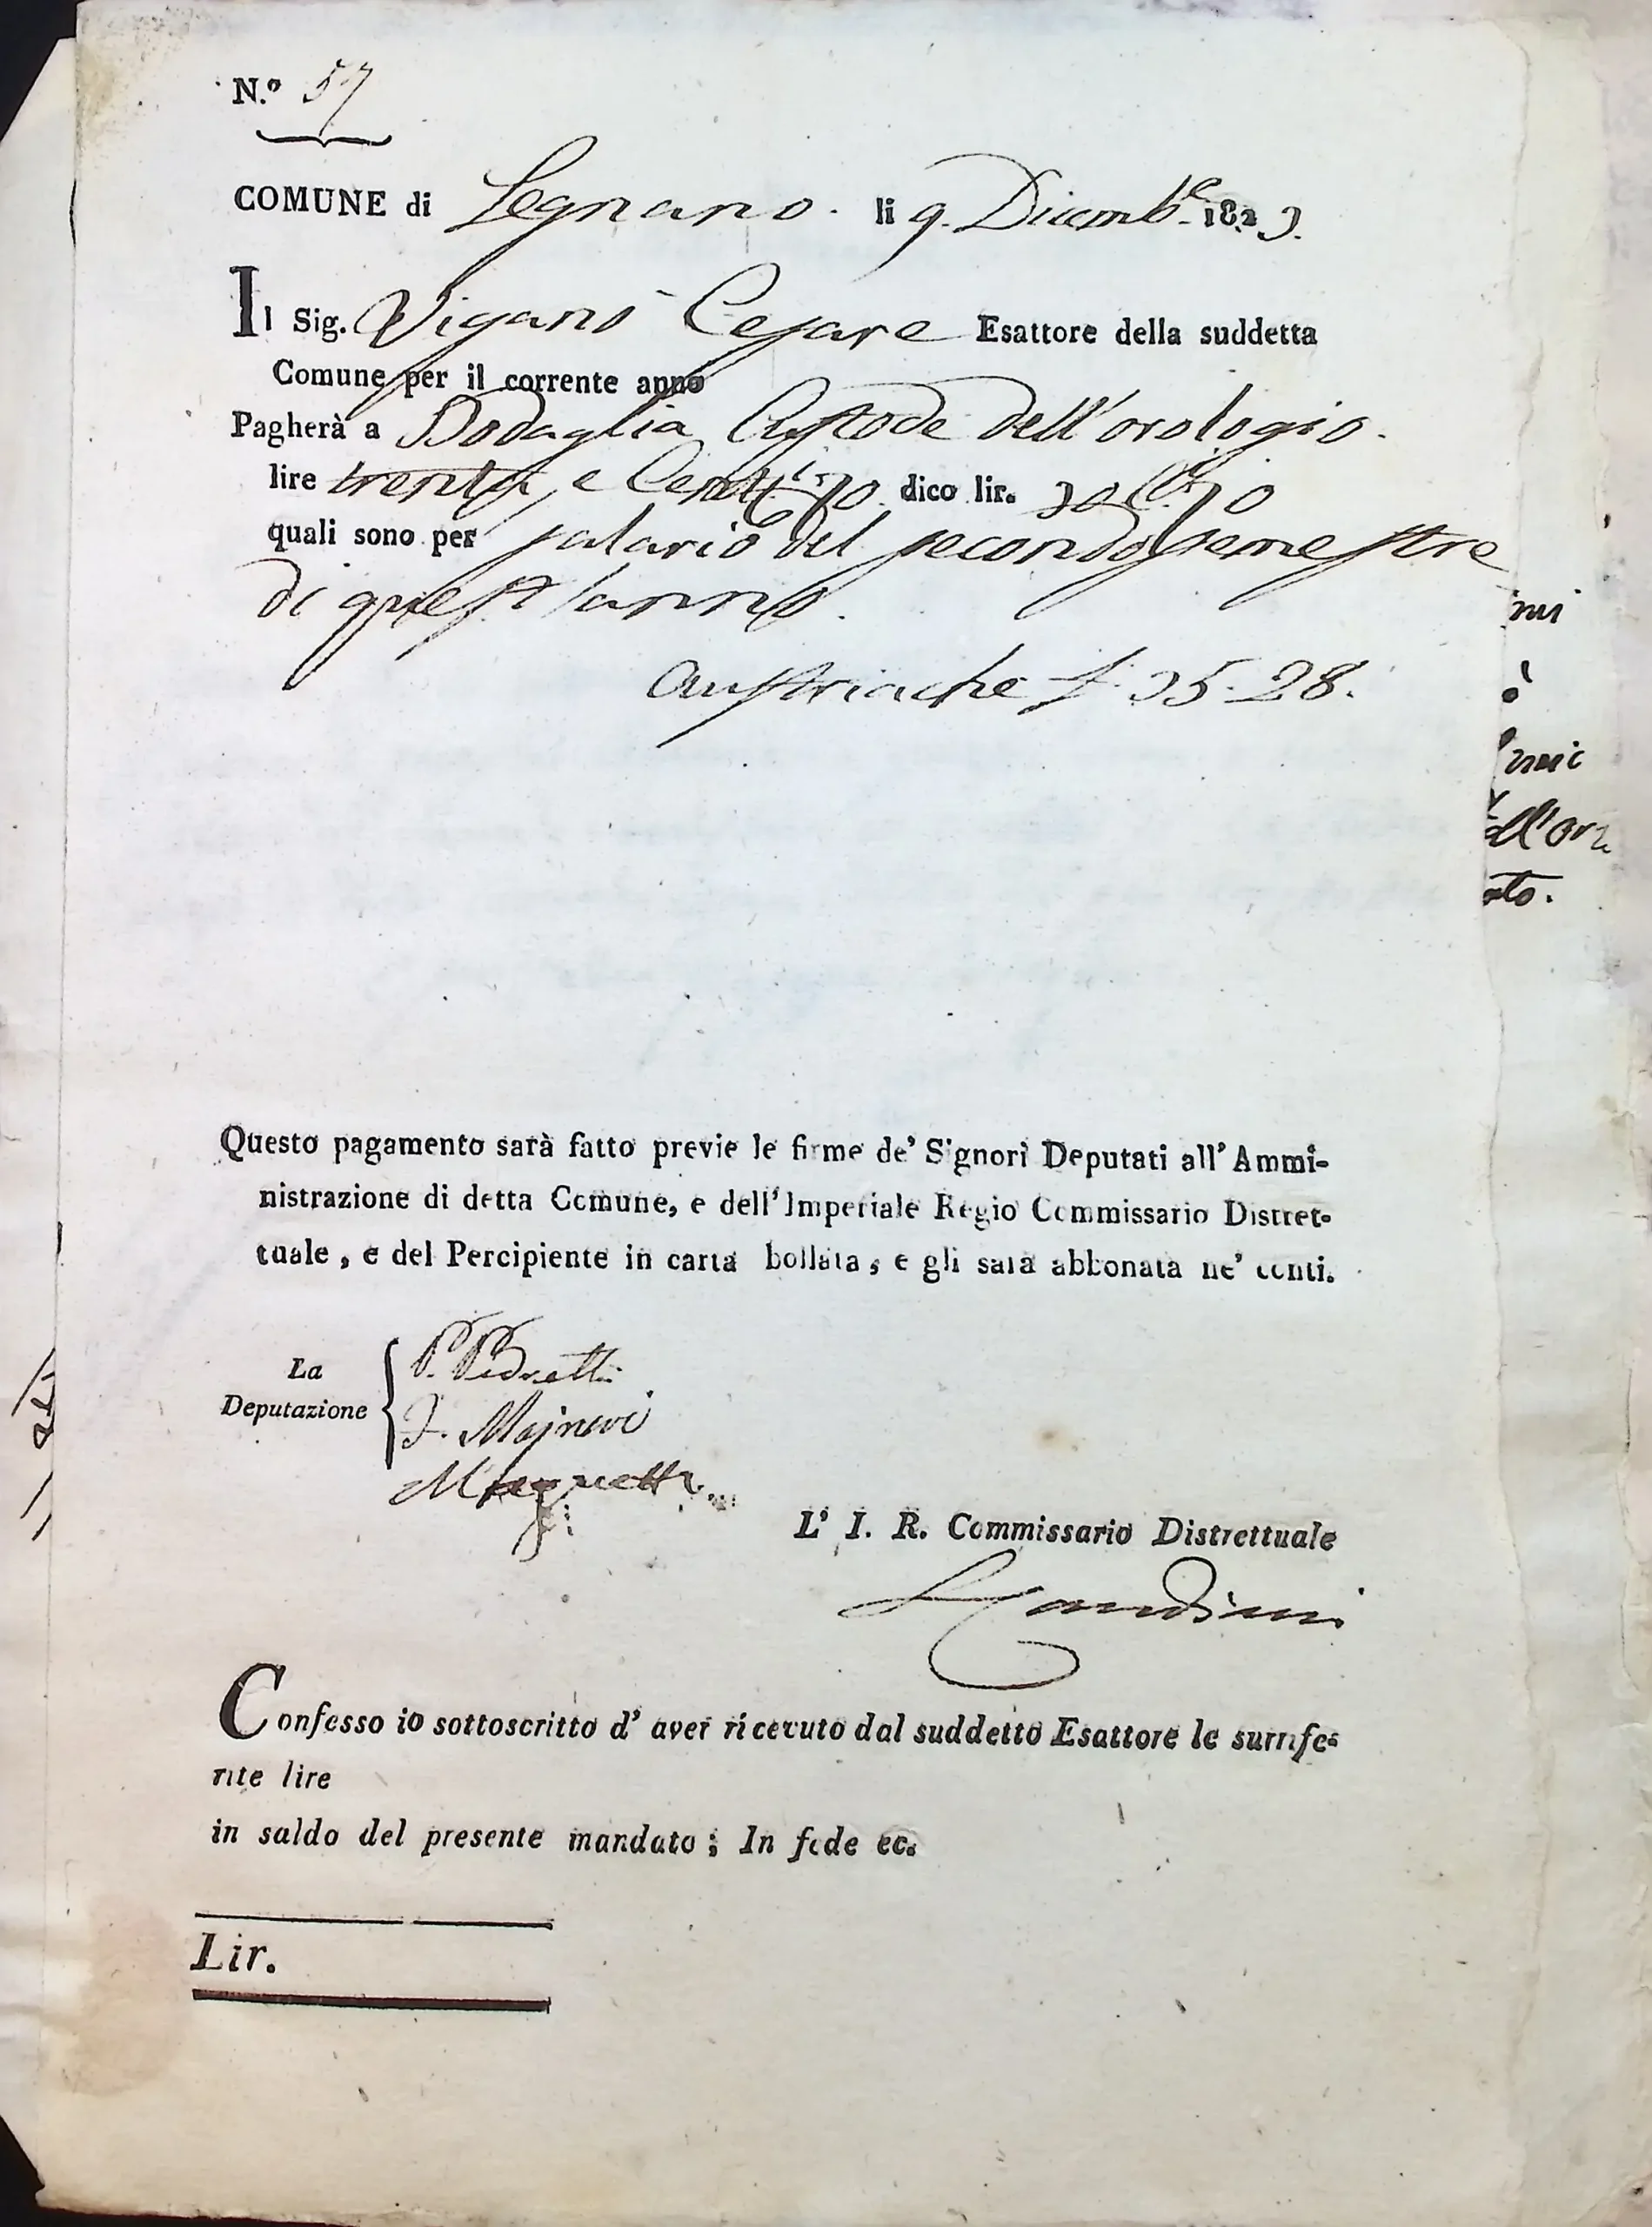 N.º 57
COMUNE di Legnano. li 9. Dicemb.e 1823.
Il Sig. Viganò Cesare Esattore della suddetta
Comune per il corrente anno
Pagherà a Bodaglia Custode dell'orologio.
lire trenta, e Cent.i 70. dico lir. 30 C.i 70
quali sono per salario del secondo semestre
di quest'anno.
Austriache £ 35. 28.
Questo pagamento sarà fatto previe le firme de' Signori Deputati all'Ammi-
nistrazione di detta Comune, e dell'Imperiale Regio Commissario Distret-
tuale, e del Percipiente in carta bollata, e gli sarà abbonata ne' conti.
La
Deputazione
P. Pedretti
L' I. R. Commissario Distrettuale
Confesso io sottoscritto d' aver ricevuto dal suddetto Esattore le surrife-
rite lire
in saldo del presente mandato; In fede ec.
Lir.